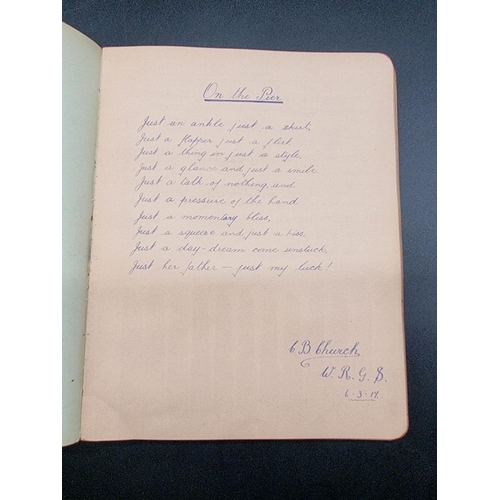 On the Pier
Just an ankle just a skirt,
Just a flapper just a flirt
Just a thing in just a style,
Just a glance and just a smile
Just a talk of nothing, and
Just a pressure of the hand
Just a momentary bliss,
Just a squeeze and just a kiss,
Just a day-dream come unstuck,
Just her father — just my luck!
C B Church,
W. R. G. S.
6.3.17.